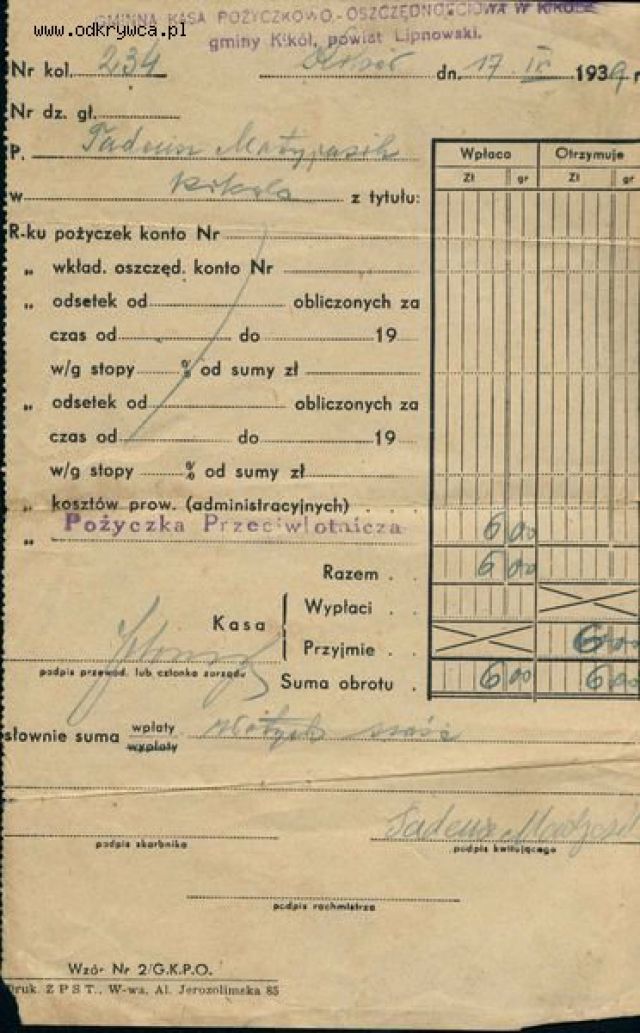 www.odkrywca.pl
GMINNA KASA POŻYCZKOWO-OSZCZĘDNOŚCIOWA W KIKOLE
gminy Kikół, powiat Lipnowski.
Nr kol. 234 dn. 17 IV 1939 r
Nr dz. gł.
P. Tadeusz
w z tytułu:
Wpłaca Otrzymuje
Zł gr Zł gr
R-ku pożyczek konto Nr
„ wkład. oszczęd. konto Nr
„ odsetek od obliczonych za
czas od do 19
w/g stopy % od sumy zł
„ odsetek od obliczonych za
czas od do 19
w/g stopy % od sumy zł
„ kosztów prow. (administracyjnych) . . .
„ Pożyczka Przeciwlotnicza 6 00
Razem . . 6 00
Kasa
Wypłaci . .
Przyjmie . . 6 00
Suma obrotu . 6 00 6 00
podpis przewod. lub członka zarządu
słownie suma wpłaty wypłaty złotych sześć
Tadeusz
podpis skarbnika podpis kwitującego
podpis rachmistrza
Wzór Nr 2/G.K.P.O.
Druk. Z P S T., W-wa, Al. Jerozolimska 85